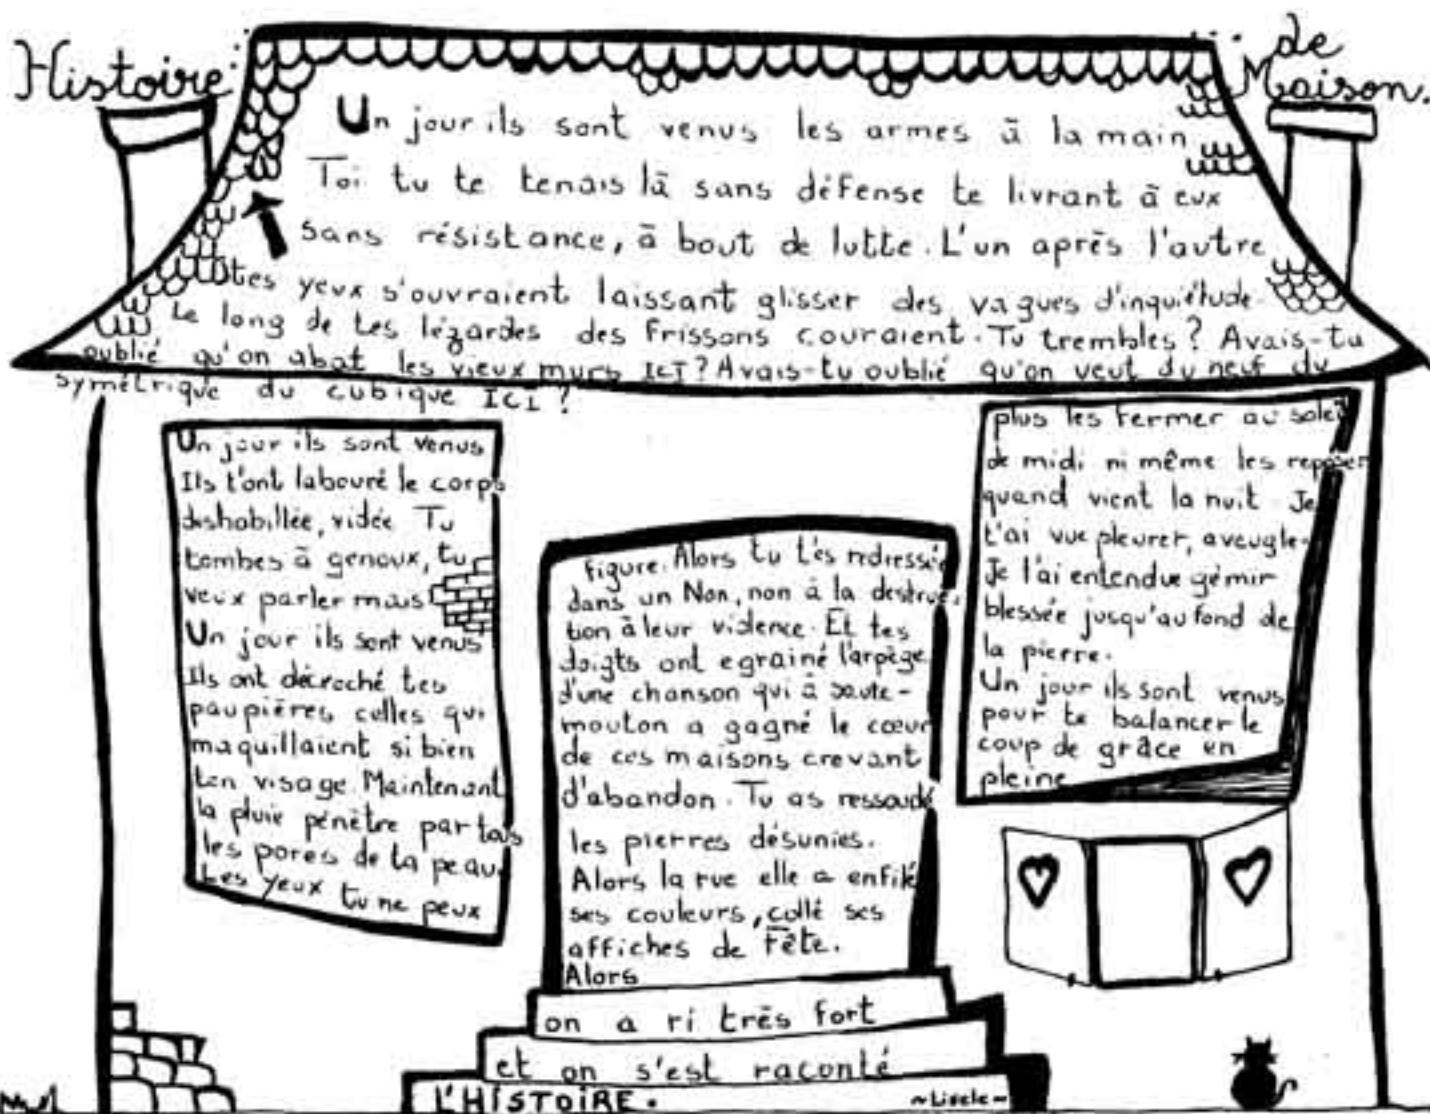 Histoire
de
Maison.
Un jour ils sont venus les armes à la main
Toi tu te tenais là sans défense te livrant à eux
sans résistance, à bout de lutte. L'un après l'autre
tes yeux s'ouvraient laissant glisser des vagues d'inquiétude.
Le long de tes lézardes des frissons couraient. Tu trembles ? Avais-tu
oublié qu'on abat les vieux murs ICI ? Avais-tu oublié qu'on veut du neuf du
symétrique du cubique ICI ?
Un jour ils sont venus
Ils t'ont labouré le corps
deshabillée, vidée Tu
tombes à genoux, tu
veux parler mais
Un jour ils sont venus
Ils ont décroché tes
paupières celles qui
maquillaient si bien
ton visage. Maintenant
la pluie pénètre par tous
les pores de ta peau.
Les yeux tu ne peux
plus les fermer au soleil
de midi ni même les reposer
quand vient la nuit Je
t'ai vue pleurer, aveugle.
Je t'ai entendue gémir
blessée jusqu'au fond de
la pierre.
Un jour ils sont venus
pour te balancer le
coup de grâce en
pleine
figure. Alors tu t'es redressée
dans un Non, non à la destruc-
tion à leur violence. Et tes
doigts ont egrainé l'arpège
d'une chanson qui à saute-
mouton a gagné le cœur
de ces maisons crevant
d'abandon. Tu as ressoudé
les pierres désunies.
Alors la rue elle a enfilé
ses couleurs, collé ses
affiches de Fête.
Alors
on a ri très fort
et on s'est raconté
L'HISTOIRE.